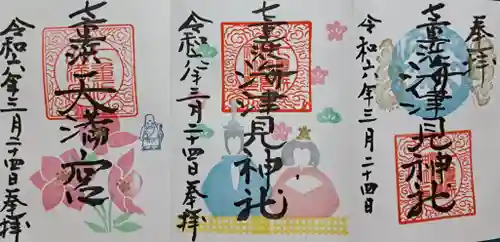 奉拝
七重浜海津見神社
令和六年三月二十四日
七重浜海津見神社
令和六年三月二十四日 奉拝
七重浜天満宮
令和六年三月二十四日 奉拝